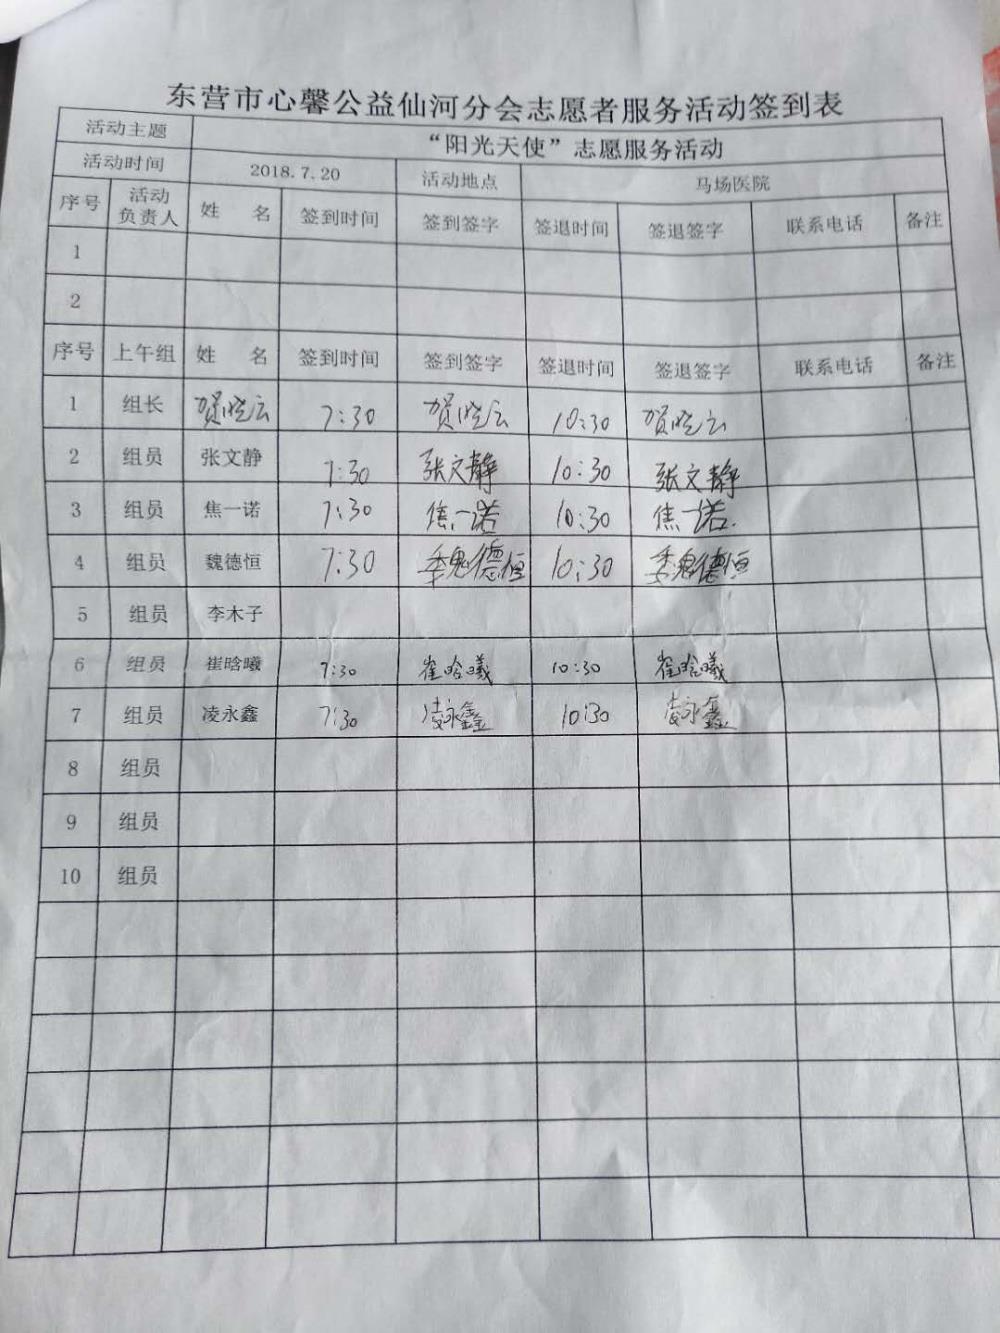 东营市心馨公益仙河分会志愿者服务活动签到表
活动主题 “阳光天使”志愿服务活动
活动时间 2018.7.20 活动地点 马场医院
序号 活动负责人 姓 名 签到时间 签到签字 签退时间 签退签字 联系电话 备注
1
2
序号 上午组 姓 名 签到时间 签到签字 签退时间 签退签字 联系电话 备注
1 组长 贺晓云 7:30 贺晓云 10:30 贺晓云
2 组员 张文静 7:30 张文静 10:30 张文静
3 组员 焦一诺 7:30 焦一诺 10:30 焦一诺.
4 组员 魏德恒 7:30 魏德恒 10:30 魏德恒
5 组员 李木子
6 组员 崔晗曦 7:30 崔晗曦 10:30 崔晗曦
7 组员 凌永鑫 7:30 凌永鑫 10:30 凌永鑫
8 组员
9 组员
10 组员